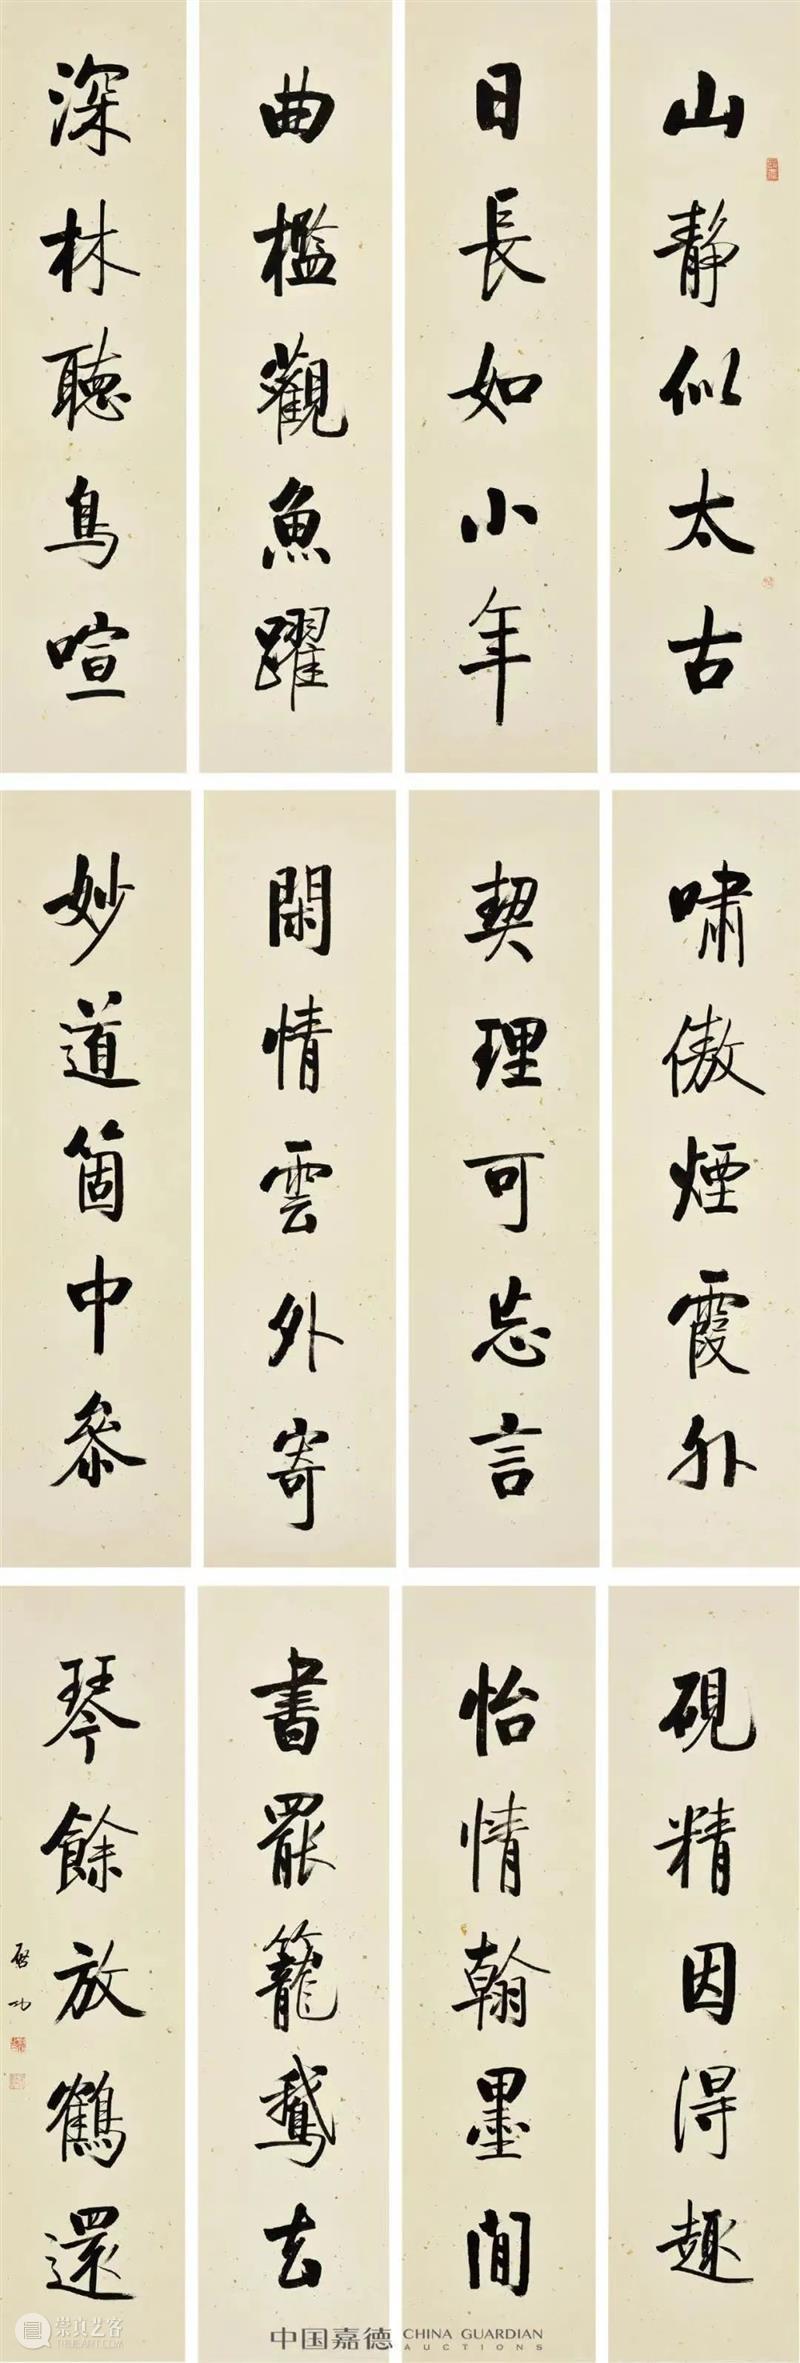 山靜似太古
日長如小年
曲檻觀魚躍
深林聽鳥喧
嘯傲煙霞外
契理可忘言
閑情雲外寄
妙道箇中參
硯精因得趣
怡情翰墨間
書罷籠鵝去
琴餘放鶴還
啟功
中国嘉德 CHINA GUARDIAN
AUCTIONS
崇真艺客
TRUEART.COM